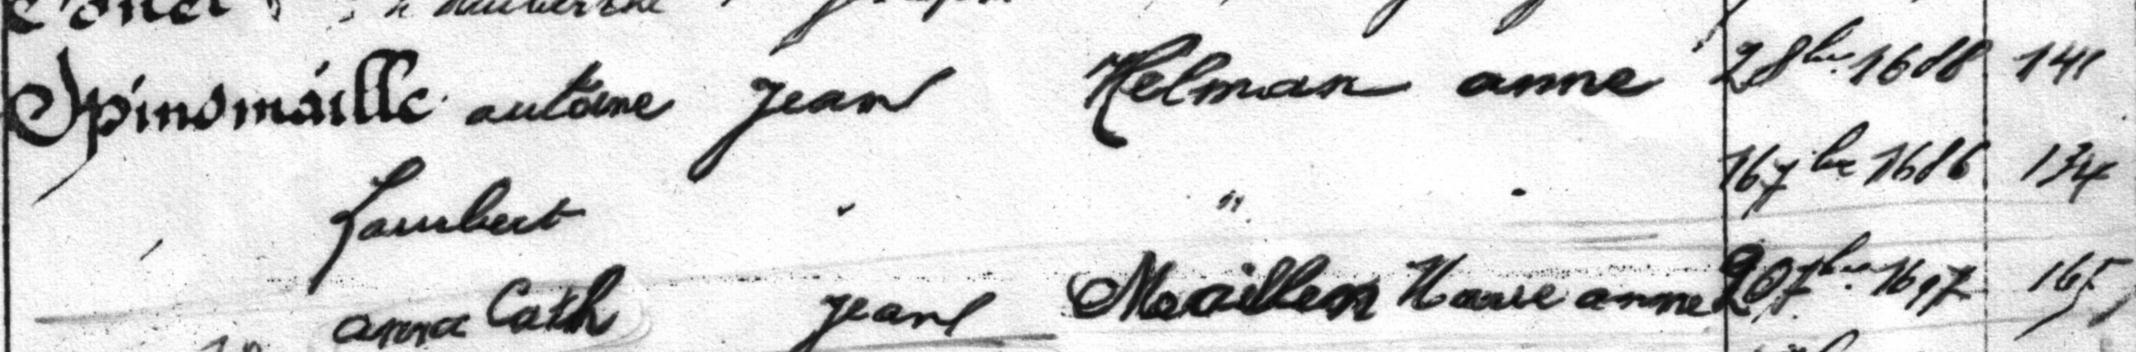 Spinomaille antoine Jean Helman anne 2 8bre 1688 141
Lambert " " " 16 7bre 1686 134
anna Cath Jean Maaillen Marie anne 20 7bre 1697 165